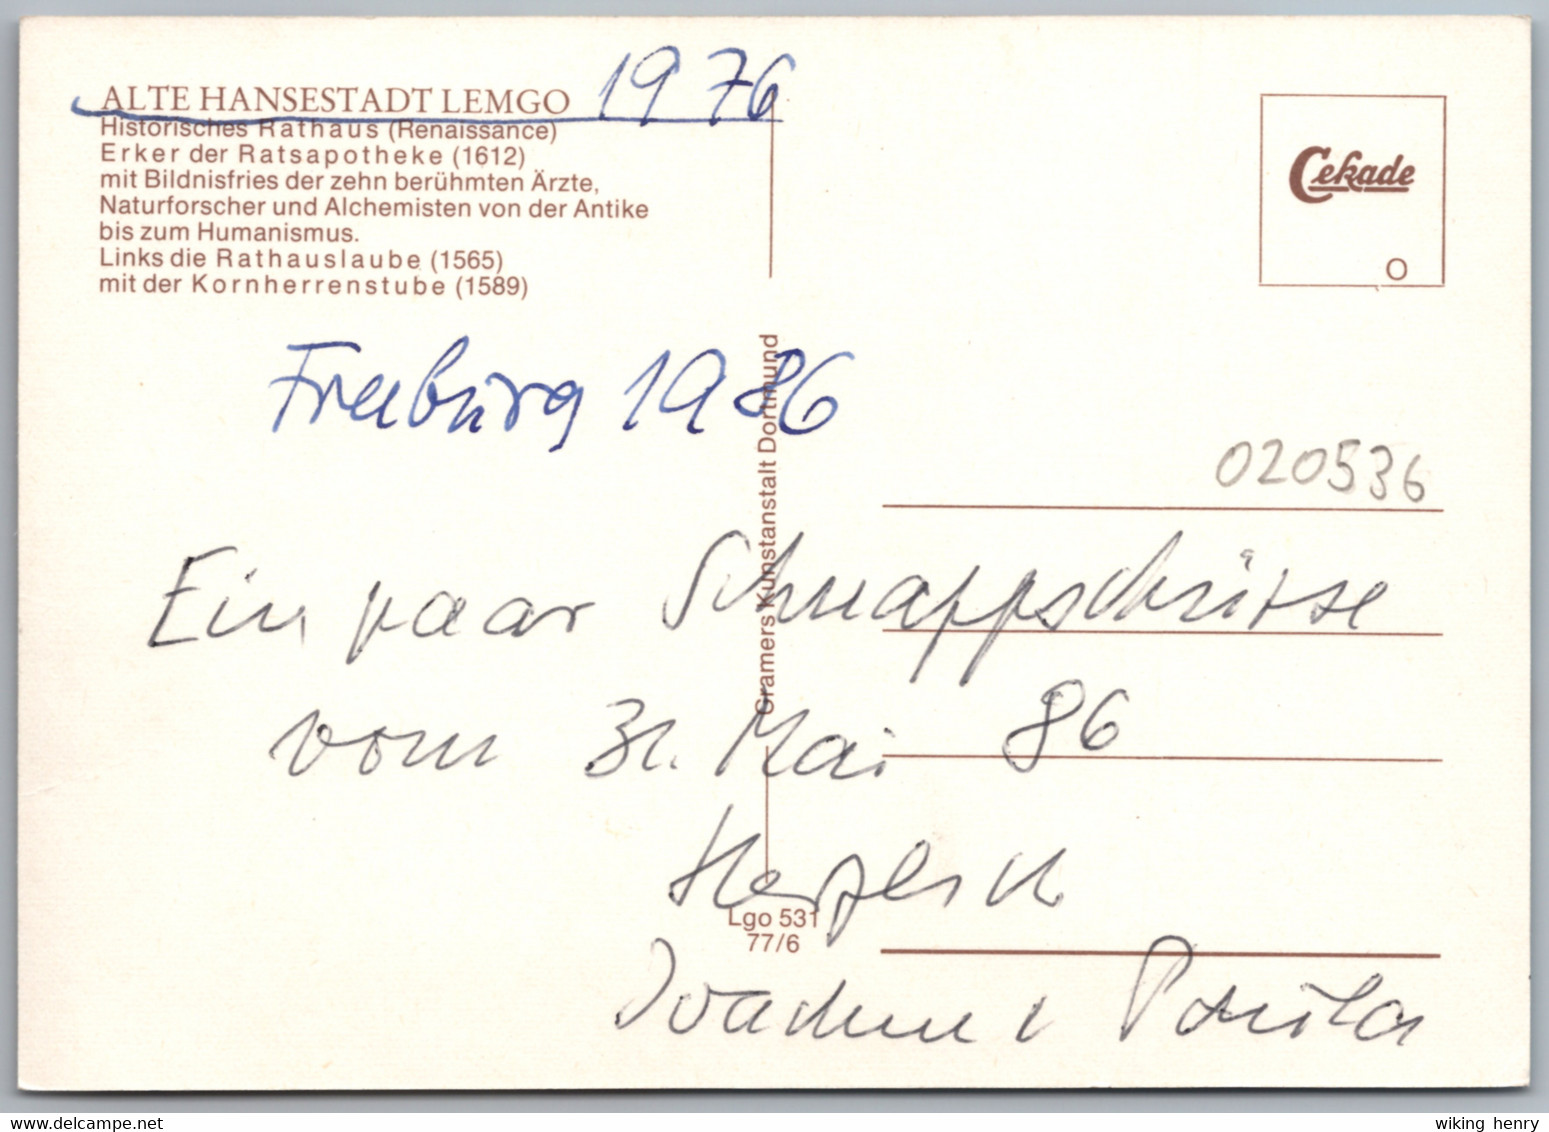 ALTE HANSESTADT LEMGO 1976
Historisches Rathaus (Renaissance)
Erker der Ratsapotheke (1612)
mit Bildnisfries der zehn berühmten Ärzte,
Naturforscher und Alchemisten von der Antike
bis zum Humanismus.
Links die Rathauslaube (1565)
mit der Kornherrenstube (1589)
Cekade
O
Freiburg 1986
020536
Ein paar Schnappschüsse
vom 31. Mai 86
Herzlich
Joachim
Gramers Kunstanstalt Dortmund
Lgo 531
77/6
wiking henry